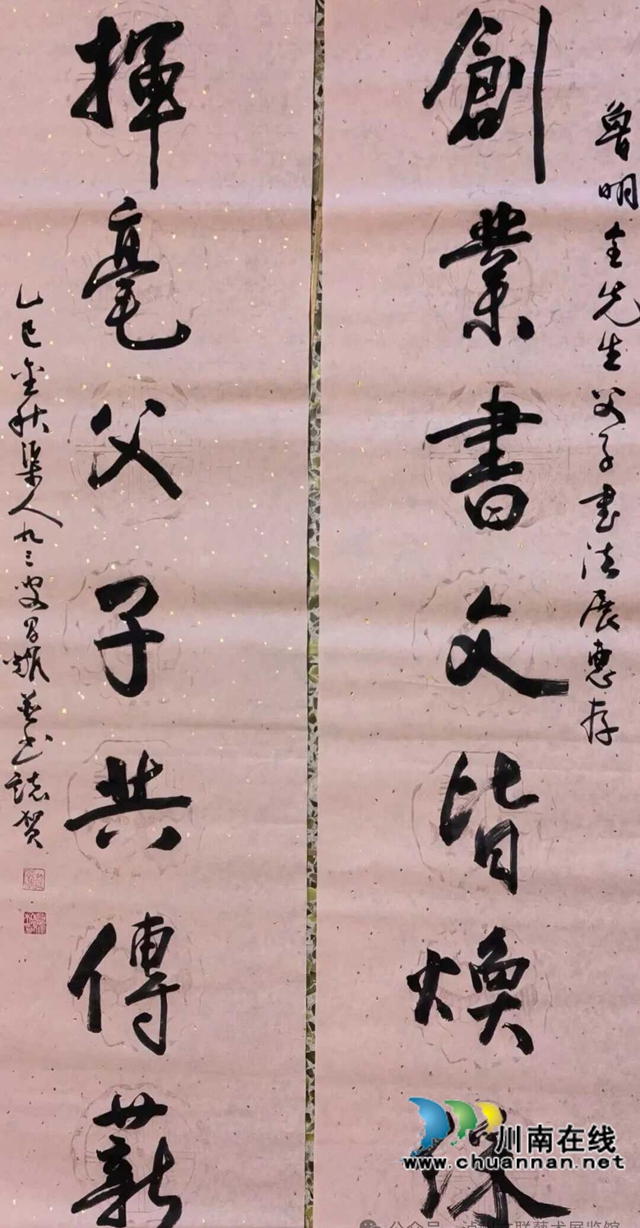 魯明全先生父子書法展惠存
創業書文皆煥
揮毫父子共傳薪
乙巳金秋渠人九三叟 并书誌贺
川南在线
www.chuannan.net